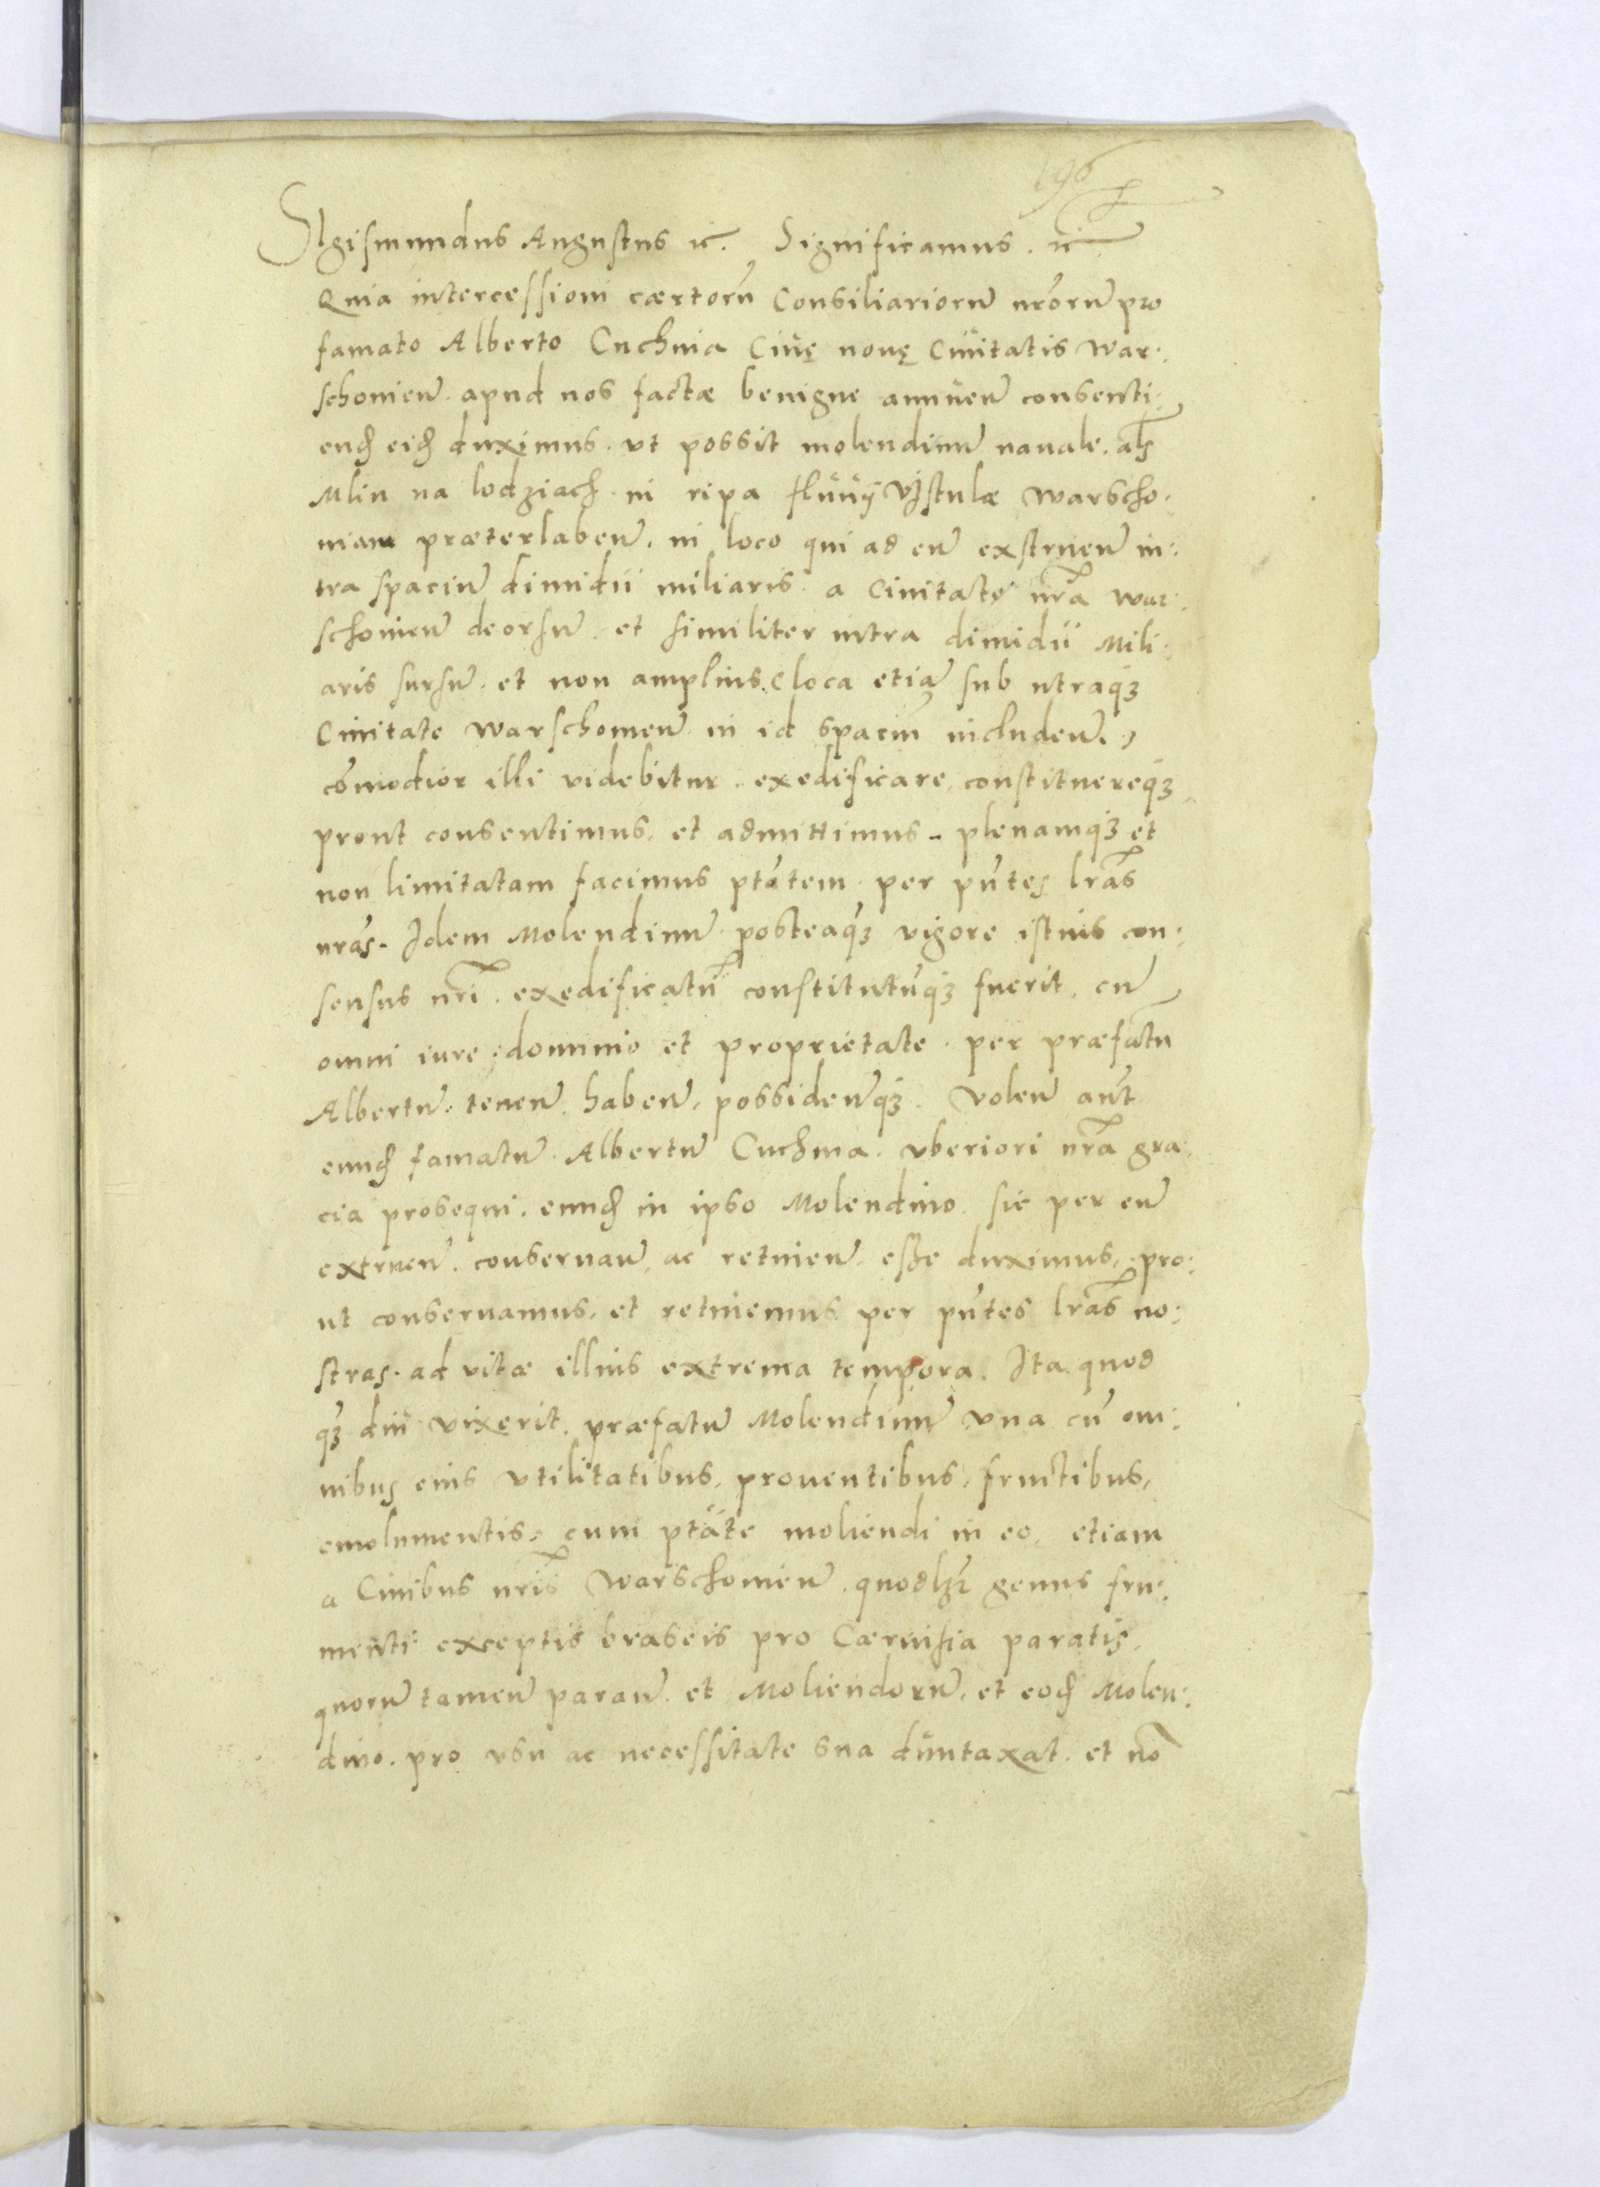 196
SIgismundus Augustus ec. Significamus. ec
Quia intercessioni cærtorū Consiliariorū nr̄orū pro
famato Alberto Cuchnia Ciuę nouę Ciuitatis War:
schouien̄. apud nos factæ benigne annuen̄ consenti:
end eid duximus. ut possit molendinū nauale. als
Mlin na lodziach in ripa fluuij Vistulæ Warscho:
uiam præterlaben̄. in loco qui ad eū exstruen̄ in:
tra spaciū dimidii miliaris. a Ciuitate nr̄a War:
schouien̄ deorsū. et similiter intra dimidii Mili:
aris sursū. et non amplius. (loca etiā sub utraq₃
Ciuitate Warschouien̄ in id spaciū includen̄.)
cōmodior illi uidebitur. exedificare, constituereq₃
prout consentimus, et admittimus. plenamq₃ et
non limitatam facimus ptātem per pn̄tes lr̄as
nr̄as. Idem Molendinū posteaq₃ uigore istius con:
sensus nr̄i. exedificatū constitutūq₃ fuerit, cū
omni iure, dominio et proprietate. per præfatū
Albertū. tenen̄. haben̄. possiden̄q₃. Volen̄ aūt
eund famatū. Albertū Cuchnia. vberiori nr̄a gra:
cia prosequi. eund in ipso Molendino sic per eū
extruen̄. conseruan̄, ac retinen̄ esse duximus, pro:
ut conseruamus, et retinemus per pn̄tes lr̄as no:
stras. ad vitæ illius extrema tempora. Ita quod
q₃ diu vixerit. præfatū Molendinū vna cū om:
nibus eius vtilitatibus, prouentibus, fructibus,
emolumentis, cum ptāte moliendi in eo, etiam
a Ciuibus nr̄is Warschouien̄. quodlz genus fru:
menti exceptis braseis pro Cæruisia paratis,
quorū tamen paran̄. et Moliendorū, et eod Molen:
dino. pro usu ac necessitate sua duntaxat. et nō